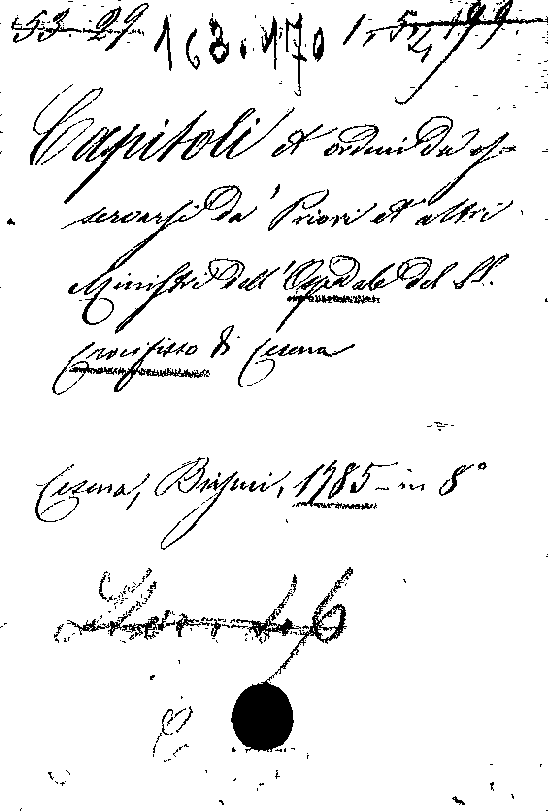 53. 29 163.170
Capitoli et ordini da os=
servarsi da' Priori et altri
Ministri dell'Ospedale del SS.
Crocifisso di Cesena
Cesena, Biasini, 1785 - in 8°